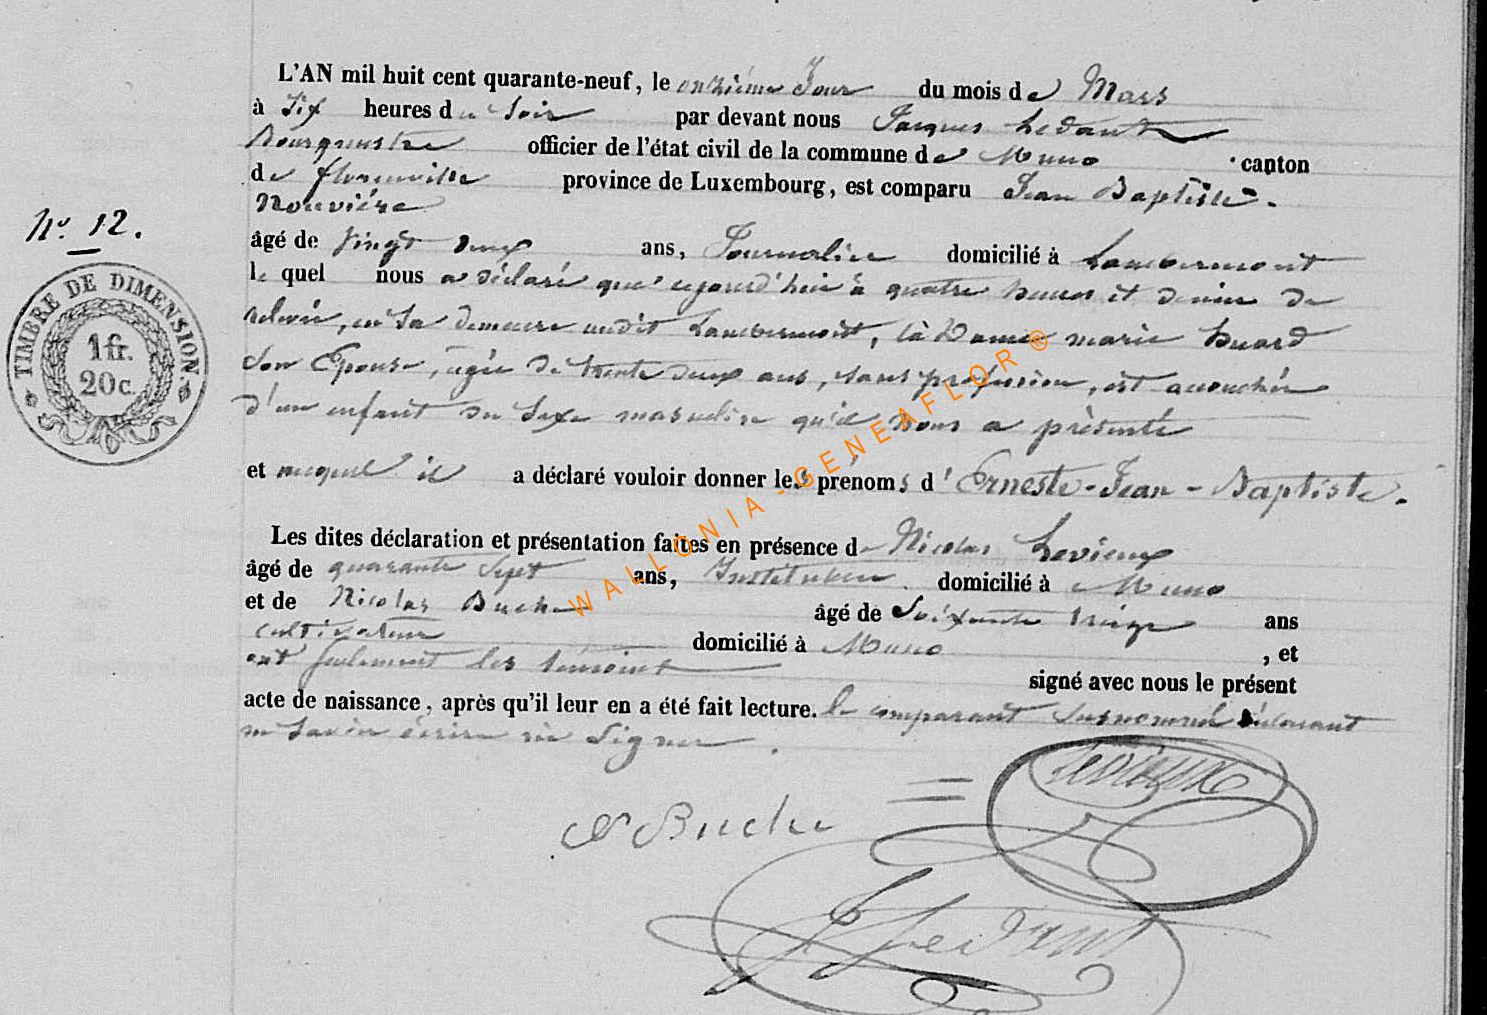 L'AN mil huit cent quarante-neuf, le onzième Jour du mois de Mars
à Six heures du Soir par devant nous Jacques Ledant
Bourgmestre officier de l'état civil de la commune de Muno canton
de florenville province de Luxembourg, est comparu Jean Baptiste-
Nouvière
No. 12.
âgé de Vingt deux ans, Journalier domicilié à Lambermont
lequel nous a déclaré que aujourd'hui à quatre heures et demie de
relevée, en Sa demeure audit Lambermont, la Dame marie huard
Son Epouse, âgée de trente deux ans, sans profession, est accouchée
d'un enfant du Sexe masculin qu'il nous a présenté
et auquel il a déclaré vouloir donner les prénoms d'Erneste-Jean-Baptiste.
Les dites déclaration et présentation faites en présence de Nicolas Levieux
âgé de quarante Sept ans, Instituteur domicilié à Muno
et de Nicolas Buche âgé de Soixante treize ans
cultivateur domicilié à Muno , et
ont seulement les témoins signé avec nous le présent
acte de naissance, après qu'il leur en a été fait lecture. le comparant Susnommé déclarant
ne Savoir écrire ni Signer.
TIMBRE DE DIMENSION
1 fr.
20 c.
WALLONIA-GENEAFLOR®
Levieux
N Buche
J Ledant